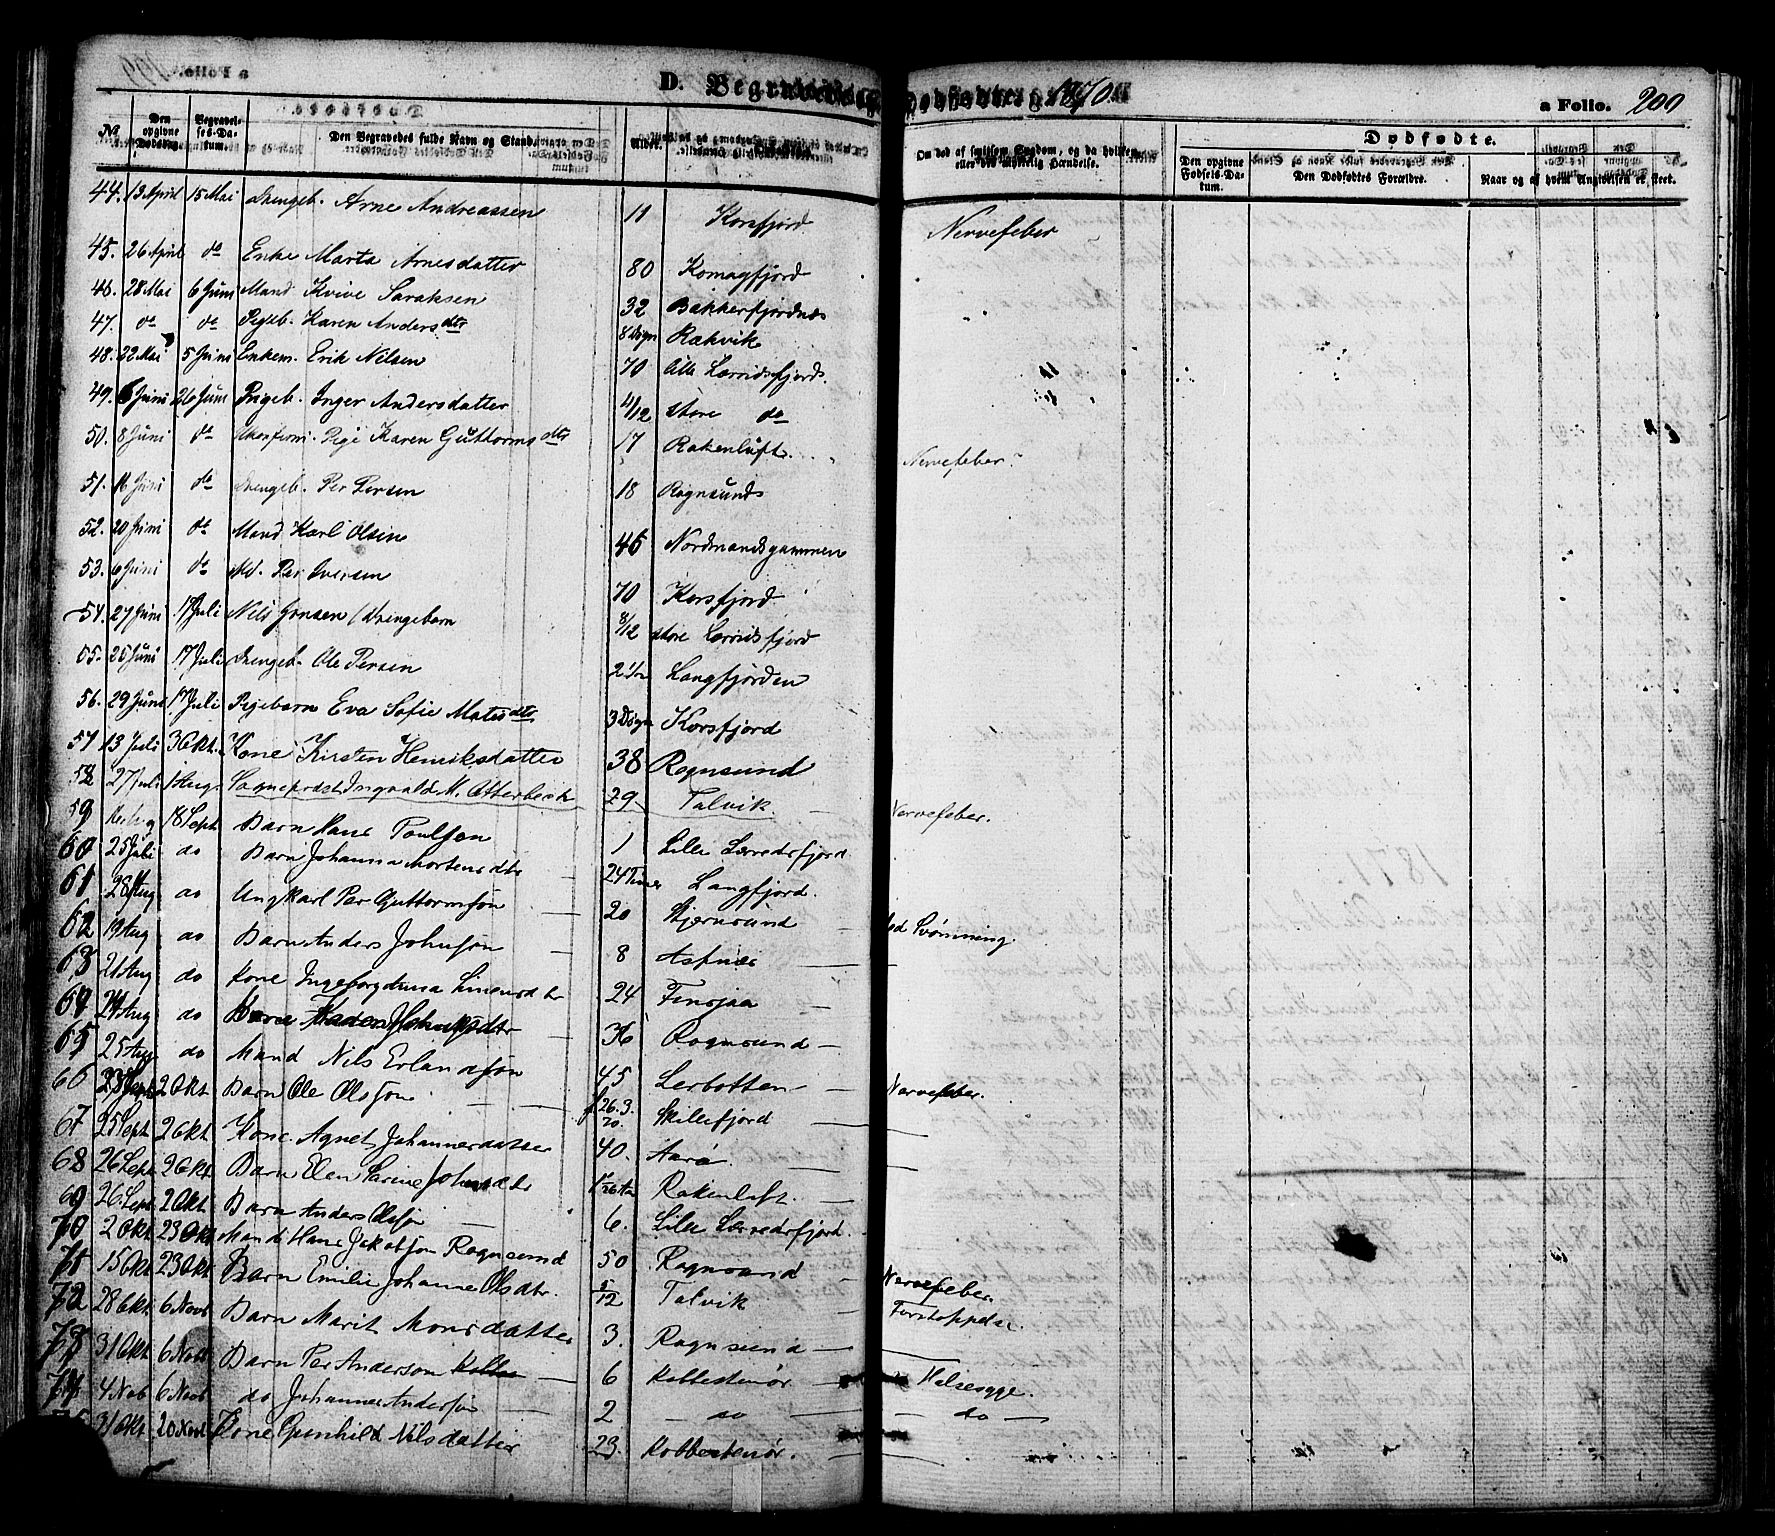 D. Begravede og Dødfødte 1870
a Folio. 200
No Den opgivne Dødsdag. Begravelses-Datum. Den Begravedes fulde Navn og Stand Alder. Om død af smitsom Sygdom, og da hvilken, eller ved ulykkelig Hændelse. Dødfødte.
Den opgivne Fødsels-Datum. Den Dødfødtes Forældre. Naar og af hvem Angivelsen er skeet.
44. 13 April 15 Mai Drengeb. Arne Andreassen 11 Korsfjord Nervefeber
45. 26 April do Enke Marta Arnesdatter 80 Komagfjord
46. 28 Mai 6 Juni Mand Kvive Saraksen 32 Bakkerfjordnæs
47. do do Pigeb. Karen Anders dtr 8 Døgn Rækvik
48. 22 Mai 5 Juni Enkem. Erik Nilsen 70 Lille Lærrisfjord
49. 6 Juni 26 Juni Pigeb. Inger Andersdatter 4/12 Store do
50. 8 Juni do Ukonferm. Pige Karen Guttorms dtr 17 Rakenluft. Nervefeber
51. 16 Juni do Drengeb. Per Persen 18 Rognsund
52. 20 Juni do Mand Karl Olsen 46 Nordmandsgammen
53. 6 Juni do Md. Per Iversen 70 Korsfjord
54. 27 Juni 17 Juli Nils Jonsen / Drengebarn 8/12 Store Lærrisfjord
55. 25 Juni 17 Juli Drengeb. Ole Persen 2 1/2 Langfjorden
56. 29 Juni 17 Juli Pigebarn Eva Sofie Mates dtr 3 Døgn Korsfjord
57 13 Juli 3 Okt. Kone Kirsten Henriksdatter 38 Rognsund
58 27 Juli 1 Aug. Sogneprest Ingvald M. Otterbech 29 Talvik Nervefeber.
59 18 Sept Barn Hans Poulsøn 1 Lille Lerredsfjord
60 25 Juli do Barn Johanna Mortensdtr 24 Timer Langfjord.
61 28 Aug do Ungkarl Per Guttormsøn 20 Stjernsund ved Svømning
62 19 Aug do Barn Anders Johnsøn 8 Asknæs
63 21 Aug do Kone Ingeborg Anna Simensdtr 24 Finsjaa
64 24 Aug do 36 Rognsund
65 25 Aug do Mand Nils Erlandsøn 45 Lerbotten Nervefeber.
66 23 Sept 2 Okt Barn Ole Olsøn f. 26.3.70. Skillefjord
67 25 Sept 2 Okt Kone. Agnet Johannesdatter 40. Aarø
68 26 Sept 2 Okt Barn Elen Sarine Johnsdtr Rakenluft.
69 26 Sept 2 Okt Barn Anders Olsøn 6. Lille Lerredsfjord.
70 2 Okt 23 Okt Mand Hans Jakobsøn Rognsund 50 Rognsund Nervefeber.
71 15 Okt 23 Okt Barn Emilie Johanne Olsdtr. 5/12 Talvik Forstoppelse
72 28 Okt 6 Novb Barn Marit Monsdatter 3. Rognsund
73 31 Okt 6 Novb Barn Per Anderson 6 Kobbestenør Halsesyge.
74 4 Nob 6 Novb do Johannes Andersøn 2 do do
75 31 Okt 20 Novb Kone Gunhild Nilsdatter 23. Kobbestenør.
1871.